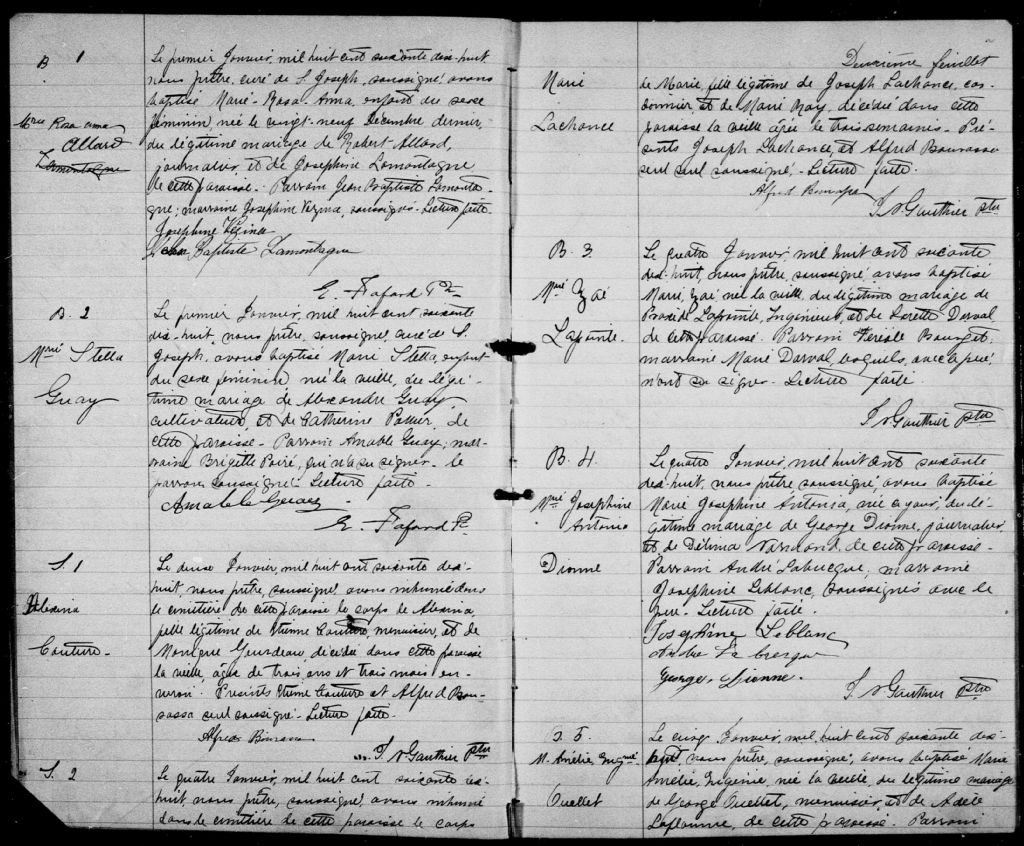 B 1
Marie Rosa anna
Allard
Lamontagne
Le premier Janvier, mil huit cent soixante dix-huit
nous prêtre, curé de S. Joseph, soussigné avons
baptisé Marie-Rosa-Anna, enfant du sexe
féminin, née le vingt-neuf Décembre dernier,
du légitime mariage de Robert Allard,
journalier, et de Josephine Lamontagne
de cette paroisse. Parrain Jean Baptiste Lamonta-
gne; marraine Josephine Vézina, soussignés. Lecture faite.
Josephine Vézina
Jean Baptiste Lamontagne
E. Fafard Ptre
B. 2
Marie Stella
Guay
Le premier Janvier, mil huit cent soixante
dix-huit, nous prêtre, soussigné, curé de S.
Joseph, avons baptisé Marie Stella, enfant
du sexe féminin née la veille, du légi-
time mariage de Alexandre Guay,
cultivateur, et de Catherine, de
cette paroisse. Parrain Amable Guay; mar-
raine Brigitte Poiré, qui n'a su signer. le
parrain soussigné. Lecture faite.
Amable Guay
E. Fafard P.
S. 1
Alexina
Couture.
Le deux Janvier, mil huit cent soixante dix-
huit, nous prêtre, soussigné, avons inhumé dans
le cimitière de cette paroisse le corps de Alexina
fille légitime de Etienne Couture, menuisier, et de
Monique Gourdeau, décédée dans cette paroisse
la veille, âgée de trois ans et trois mois en-
viron. Présents Etienne Couture et Alfred Bou-
rassa seul soussigné. Lecture faite.
Alfred Bourassa
J. N Gauthier ptre
S. 2
Le quatre Janvier, mil huit cent soixante dix-
huit, nous prêtre, soussigné, avons inhumé
dans le cimitière de cette paroisse le corps
Deuxième feuillet
Marie
Lachance
de Marie, fille légitime de Joseph Lachance, cor-
donnier, et de Marie Nay, décédée dans cette
paroisse la veille âgée de trois semaines. Pré-
sents Joseph Lachance, et Alfred Bourassa
seul soussigné. Lecture faite.
Alfred Bourassa
J. N Gauthier ptre
B. 3.
Marie Zoé
Lapointe.
Le quatre Janvier, mil huit cent soixante
dix-huit, nous prêtre, soussigné avons baptisé
Marie Zoé née la veille, du légitime mariage de
Lapointe, Ingénieur, et de Dorval
de cette paroisse. Parrain Bourget,
marraine Marie Dorval lesquels, avec le père
n'ont su signer. Lecture faite.
J. N Gauthier ptre
B. 4.
Marie Josephine
Antonia
Dionne
Le quatre Janvier, mil huit cent soixante
dix-huit, nous prêtre soussigné, avons baptisé
Marie Josephine Antonia, née ce jour, du lé-
gitime mariage de George Dionne, journalier
et de Délima Normand, de cette paroisse.
Parrain André Labrecque, marraine
Josephine Leblanc, soussignés avec le
père. Lecture faite.
Josephine Leblanc
Andre La brecque
George. Dionne.
J. N Gauthier ptre
B 5.
M. Amélie
Ouellet
Le cinq Janvier, mil huit cent soixante dix-
huit, nous prêtre, soussigné, avons baptisé Marie
Amélie, née la veille, du légitime mariage
de George Ouellet, menuisier, et de Adèle
Laflamme, de cette paroisse. Parrain